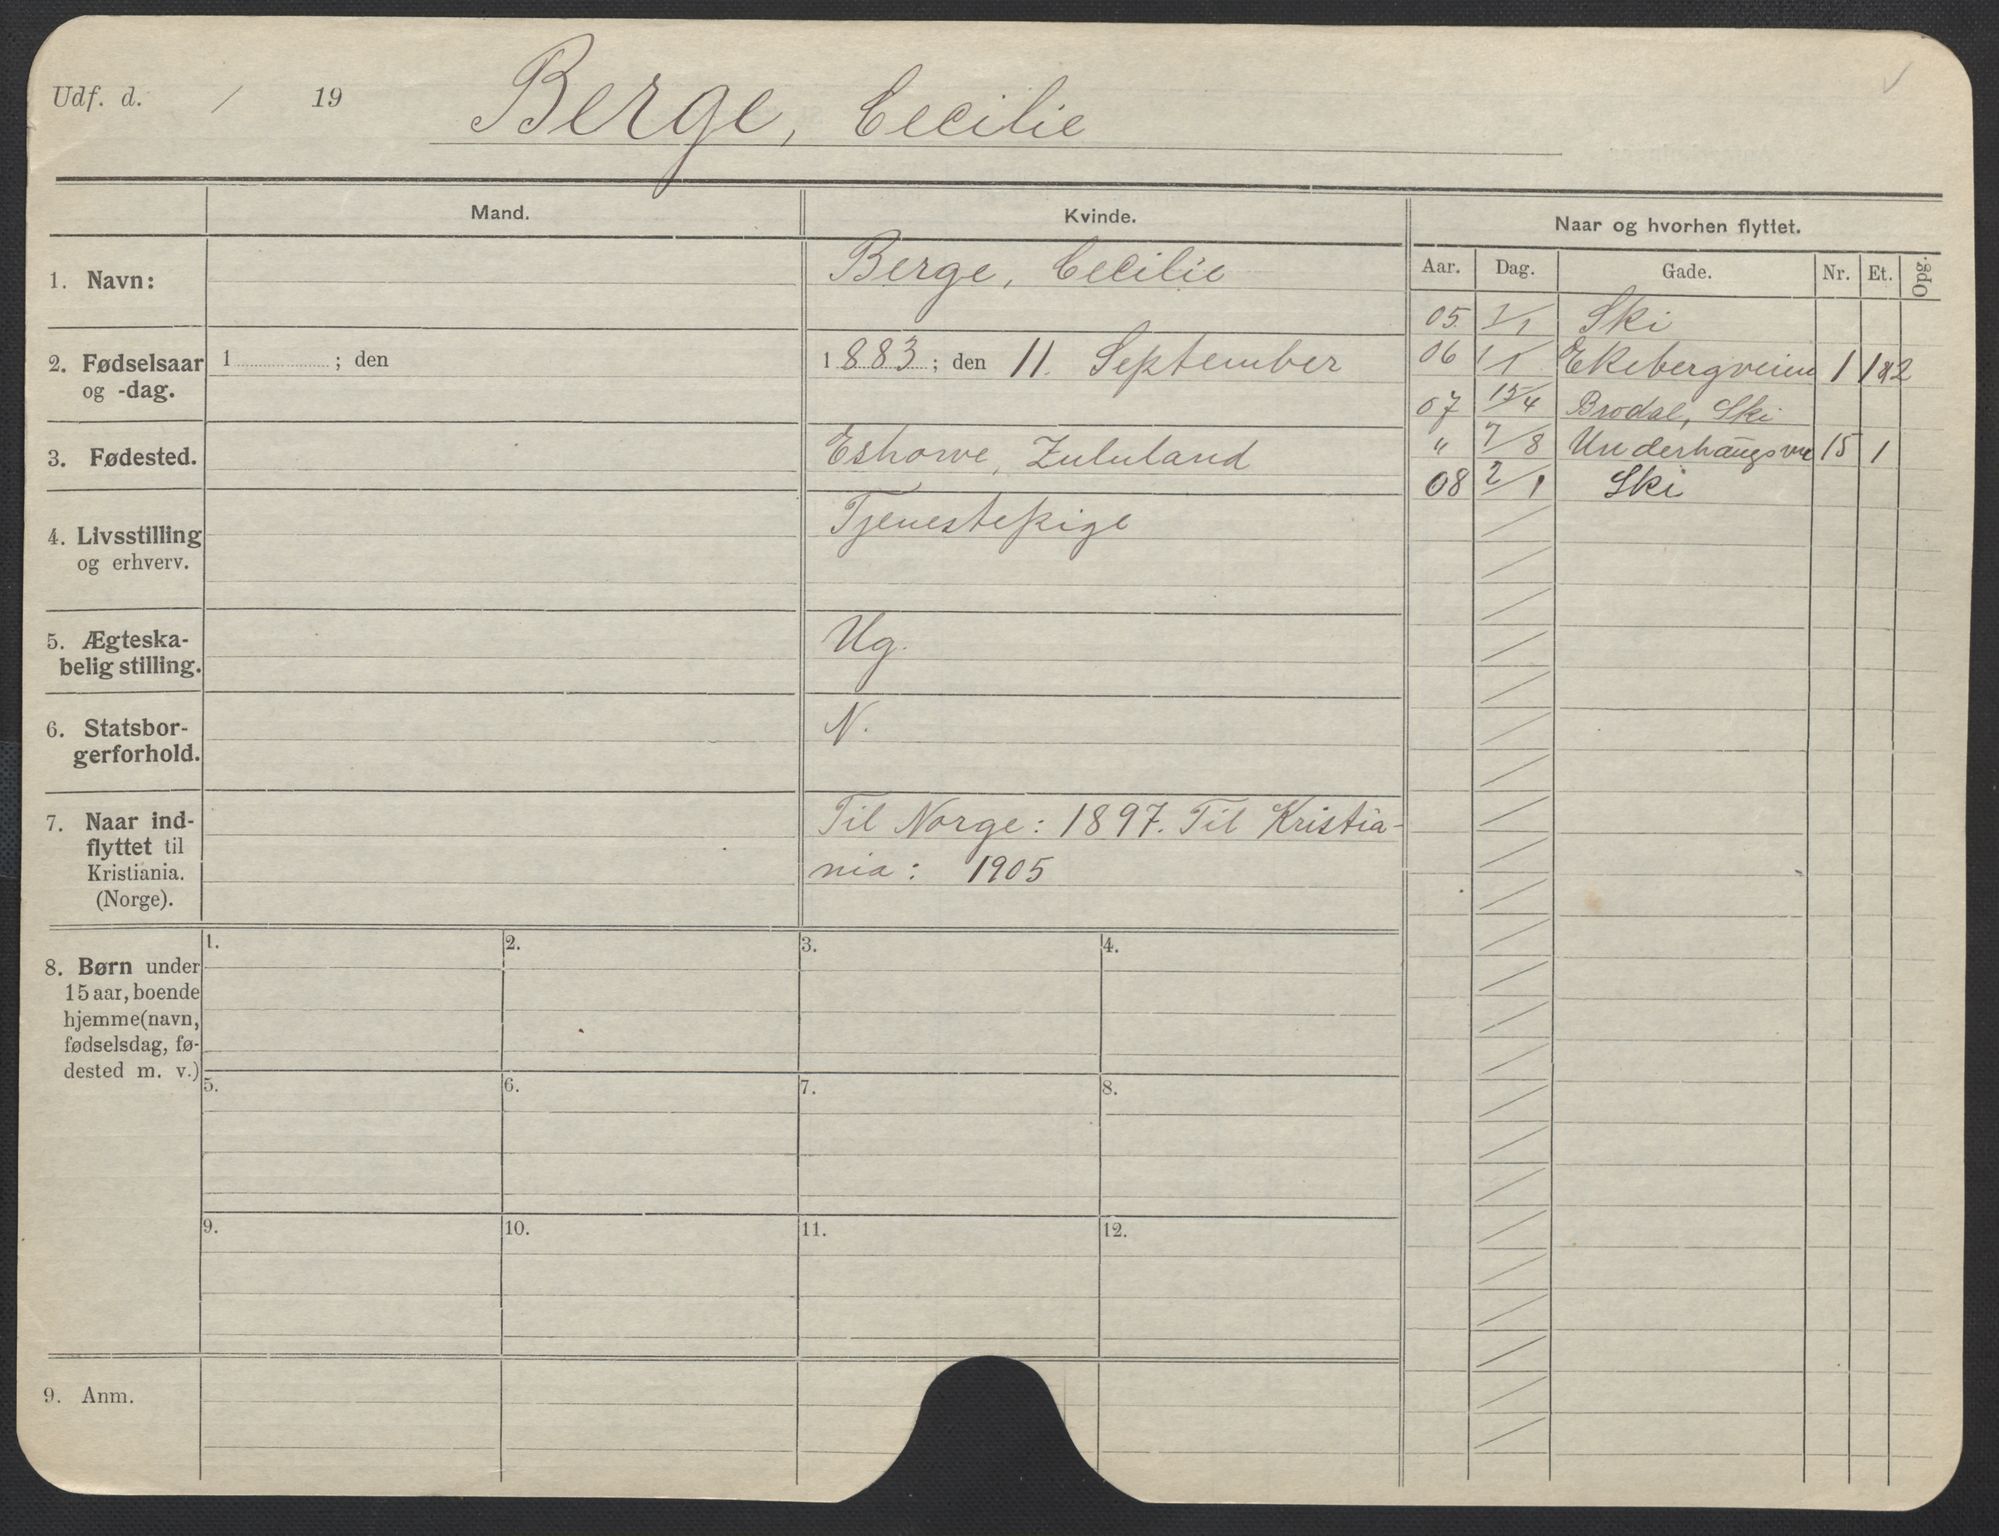 Udf. d. / 19
Berge, Cecilie
Mand.
Kvinde.
Naar og hvorhen flyttet.
Aar. Dag. Gade. Nr. Et. Opg.
1. Navn:
Berge, Cecilie
2. Fødselsaar
og -dag.
1 ; den
1883; den 11. September
3. Fødested.
Eshowe, Zululand
4. Livsstilling
og erhverv.
Tjenestepige
5. Ægteska-
belig stilling.
Ug.
6. Statsbor-
gerforhold.
N.
7. Naar ind-
flyttet til
Kristiania.
(Norge).
Til Norge: 1897. Til Kristia-
nia: 1905
05. 1/1 Ski
06 1/1 Ekebergveien 1 1
07 15/4 Brodal, Ski
" 7/8 15 1
08 2/1 Ski
8. Børn under
15 aar, boende
hjemme (navn,
fødselsdag, fø-
dested m. v.)
1. 2. 3. 4.
5. 6. 7. 8.
9. 10. 11. 12.
9. Anm.